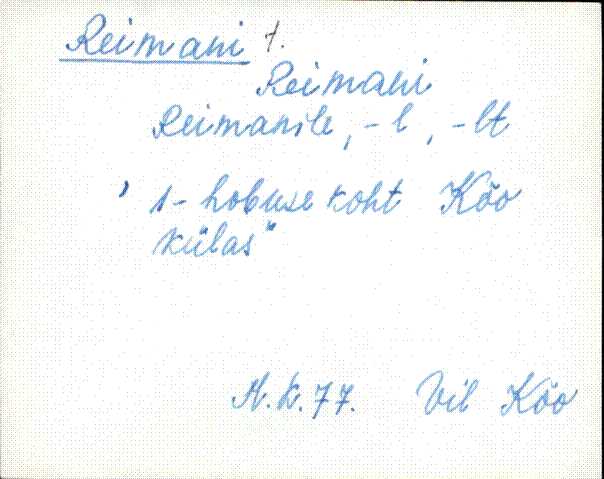 Reimani t.
Reimani
Reimanile, -l, -lt
"1-hobuse koht Kõo
külas"
A.K.77. Vil Kõo